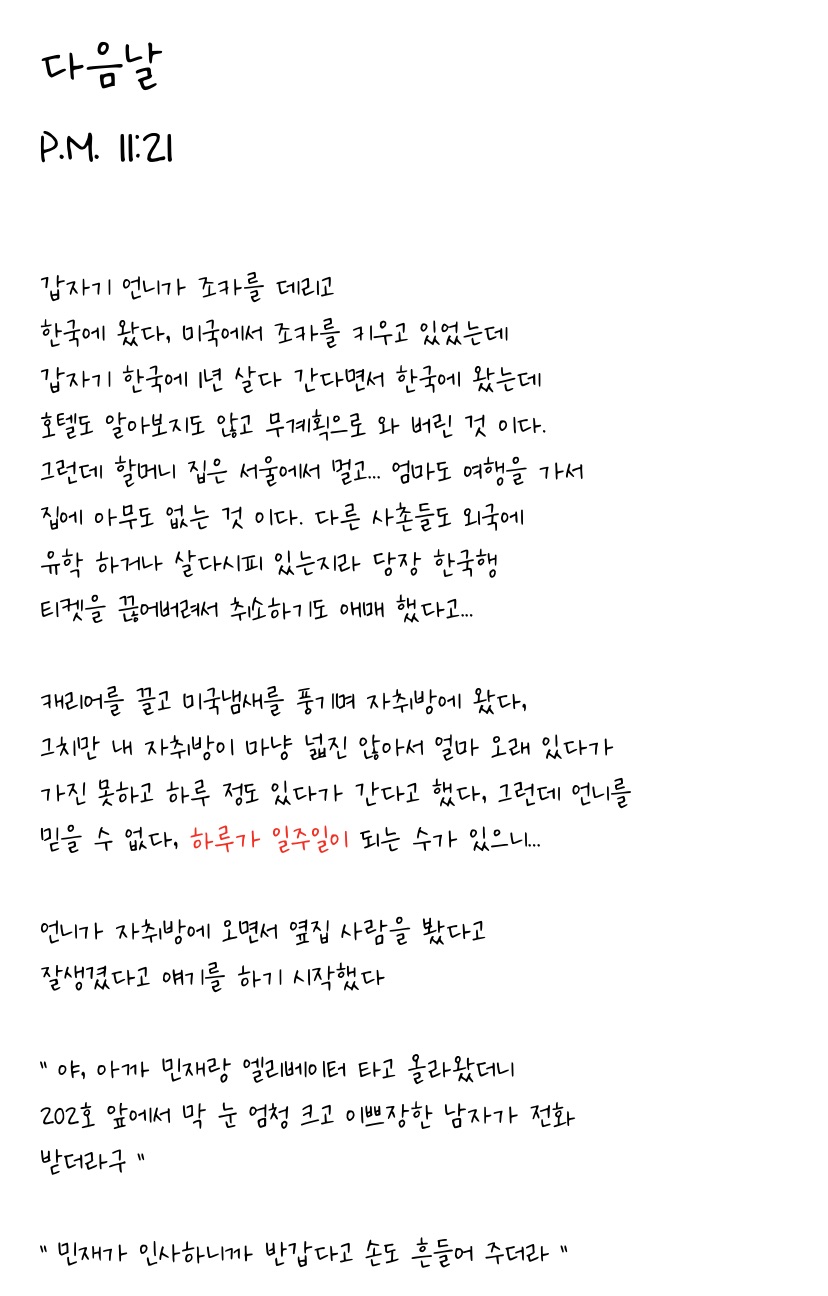 다음날
P.M. 11:21
갑자기 언니가 조카를 데리고
한국에 왔다, 미국에서 조카를 키우고 있었는데
갑자기 한국에 1년 살다 간다면서 한국에 왔는데
호텔도 알아보지도 않고 무계획으로 와 버린 것 이다.
그런데 할머니 집은 서울에서 멀고... 엄마도 여행을 가서
집에 아무도 없는 것 이다. 다른 사촌들도 외국에
유학 하거나 살다시피 있는지라 당장 한국행
티켓을 끊어버려서 취소하기도 애매 했다고...
캐리어를 끌고 미국냄새를 풍기며 자취방에 왔다,
그치만 내 자취방이 마냥 넓진 않아서 얼마 오래 있다가
가진 못하고 하루 정도 있다가 간다고 했다, 그런데 언니를
믿을 수 없다, 하루가 일주일이 되는 수가 있으니...
언니가 자취방에 오면서 옆집 사람을 봤다고
잘생겼다고 얘기를 하기 시작했다
" 야, 아까 민재랑 엘리베이터 타고 올라왔더니
202호 앞에서 막 눈 엄청 크고 이쁘장한 남자가 전화
받더라구 "
" 민재가 인사하니까 반갑다고 손도 흔들어 주더라 "